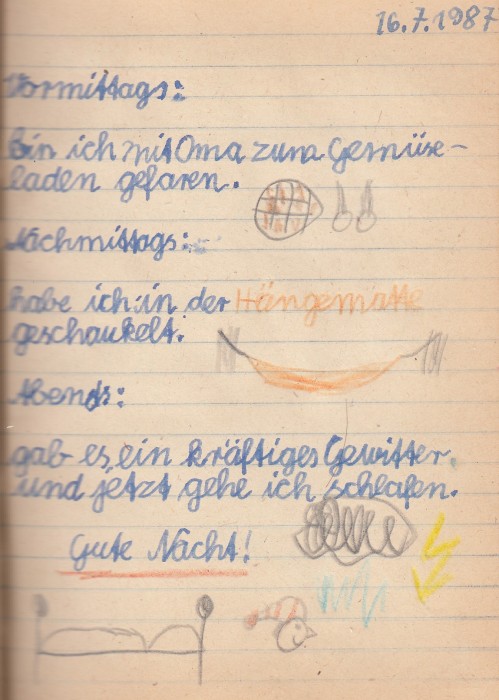 16.7.1987
Vormittags:
bin ich mit Oma zum Gemüse-
laden gefaren.
Nachmittags:
habe ich in der Hängematte
geschaukelt.
Abends:
gab es ein kräftiges Gewitter.
und jetzt gehe ich schlafen.
Gute Nacht!